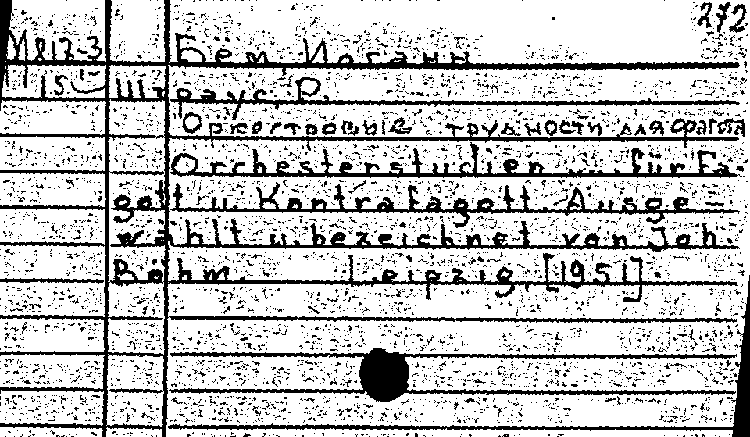 272
И817-3 Бём, Иоганн
15 Штраус, Р.
Оркестровые трудности для фагота
Orchesterstudien ... für Fa-
gott u. Kontrafagott. Ausge-
wählt u. bezeichnet von Joh.
Böhm. Leipzig, [1951].